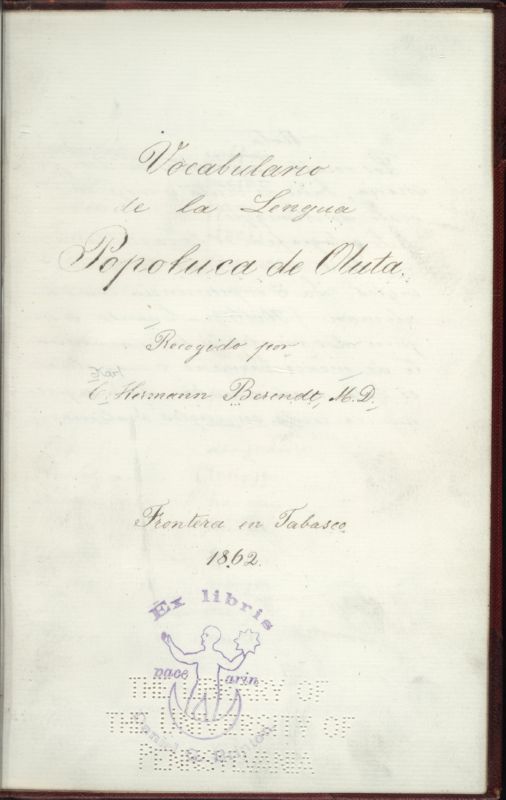 Vocabulario
de la Lengua
Popoluca de Oluta.
Recogido por
Karl
C. Hermann Berendt, M. D.
Frontera en Tabasco
1862.
Ex libris
pace
THE LIBRARY OF
THE UNIVERSITY OF
PENNSYLVANIA
Daniel G. Brinton